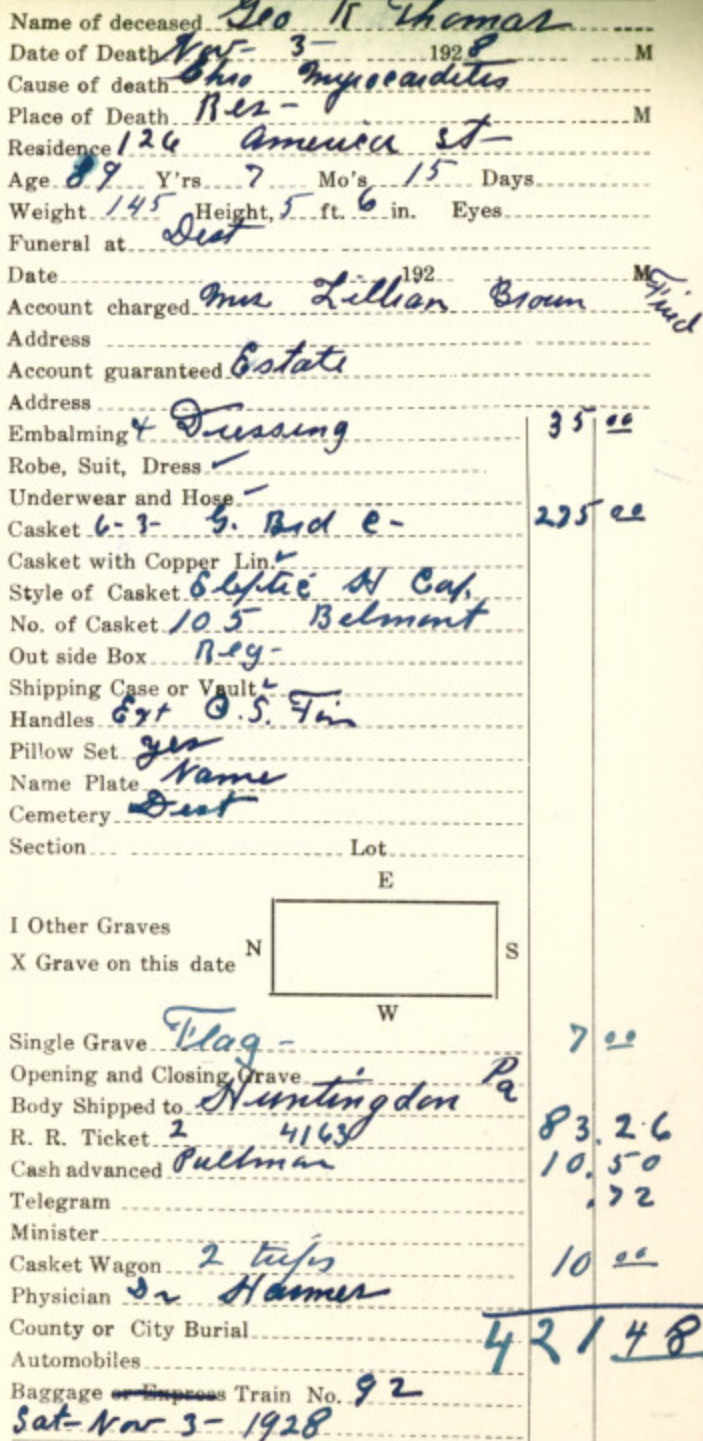 Name of deceased Geo R Thomas
Date of Death Nov- 3- 1928 M
Cause of death Chro Myocarditis
Place of Death Res- M
Residence 126 America St-
Age 89 Y'rs 7 Mo's 15 Days
Weight 145 Height, 5 ft. 6 in. Eyes
Funeral at Dest
Date 192 M
Account charged Mrs Lillian Brown
Address
Account guaranteed Estate
Address
Embalming & Dressing 35 00
Robe, Suit, Dress ✓
Underwear and Hose ✓
Casket 6-3- G. Brd C- 275 00
Casket with Copper Lin. ✓
Style of Casket Cap.
No. of Casket 105 Belmont
Out side Box Reg-
Shipping Case or Vault ✓
Handles Ext O.S.
Pillow Set yes
Name Plate Name
Cemetery Dest
Section Lot
E
I Other Graves
N S
X Grave on this date
W
Single Grave Flag - 7 00
Opening and Closing Grave
Body Shipped to Huntingdon Pa
R. R. Ticket 2 4163 83.26
Cash advanced Pullman 10.50
Telegram .72
Minister
Casket Wagon 2 trips 10 00
Physician Dr
County or City Burial 421 48
Automobiles
Baggage or Express Train No. 92
Sat- Nov 3- 1928